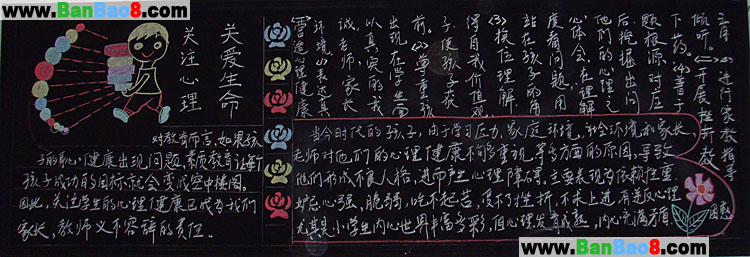 www.BanBao8.com
www.BanBao8.com
关爱生命
关注心理
对教育而言,如果孩
子的心理健康出现问题,素质教育让每个
孩子成功的目标就会变成空中楼阁。
因此,关注学生的心理健康已成为我们
家长,教师义不容辞的责任。
营造心理健康
环境(1)表达真
诚,老师、家长
以真实的我
出现在学生面
前。(2)尊重孩
子,使孩子获
得自我价值观
(3)换位理解
站在孩子的角
度看问题,用
心体会,在理解
他们的心理之
后,挖掘出问
题根源对症
下药。(4)善于
倾听。(二)开展挫折教
进行家教指导
当今时代的孩子,由于学习压力,家庭环境,社会环境和家长、
老师对他们的心理健康不够重视等多方面的原因,导致
他们形成不良人格,进而产生心理障碍。主要表现为依赖性重
妒忌心强,脆弱,吃不起苦,受不了挫折,不求上进,有逆反心理
尤其是小学生内心世界丰富多彩,但心理发育成熟,内心充满矛盾
困惑
www.BanBao8.com